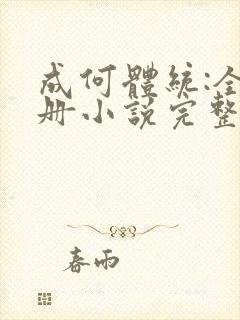 成何體統:全
册小說完整
春雨